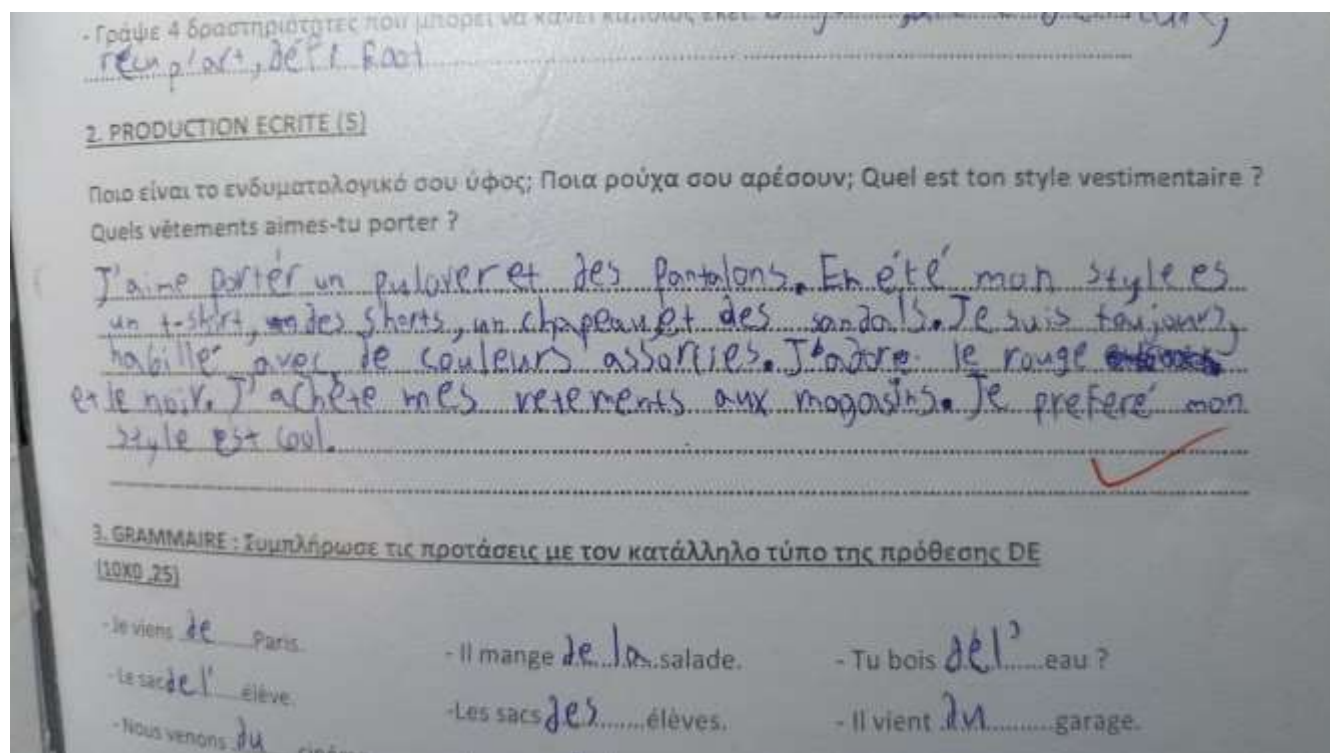 - Γράψε 4 δραστηριότητες που μπορεί να κάνει κάποιος εκεί.
défi foot
2. PRODUCTION ECRITE (5)
Ποιο είναι το ενδυματολογικό σου ύφος; Ποια ρούχα σου αρέσουν; Quel est ton style vestimentaire ?
Quels vêtements aimes-tu porter ?
J'aime portér un pulover et des pantalons. En été mon style es
un t-shirt, des shorts, un chapeau et des sandals. Je suis toujours,
habiller avec de couleurs assorties. J'adore le rouge
et le noir. J'achète mes vetements aux magasins. Je preferé mon
style est cool.
3. GRAMMAIRE : Συμπλήρωσε τις προτάσεις με τον κατάλληλο τύπο της πρόθεσης DE
(10X0 ,25)
- Je viens de Paris. - Il mange de la salade. - Tu bois dél' eau ?
- Le sac de l' élève. - Les sacs des élèves. - Il vient du garage.
- Nous venons du